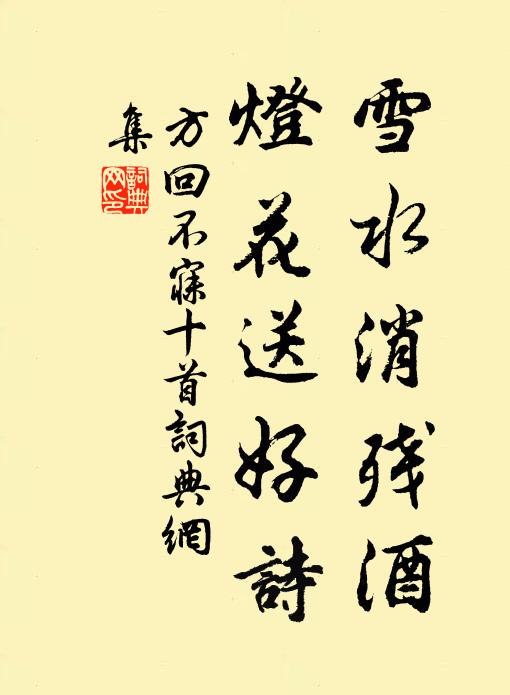 雪水消残酒
燈花送好詩
方回不寐十首詞典網
集
詞典
网印